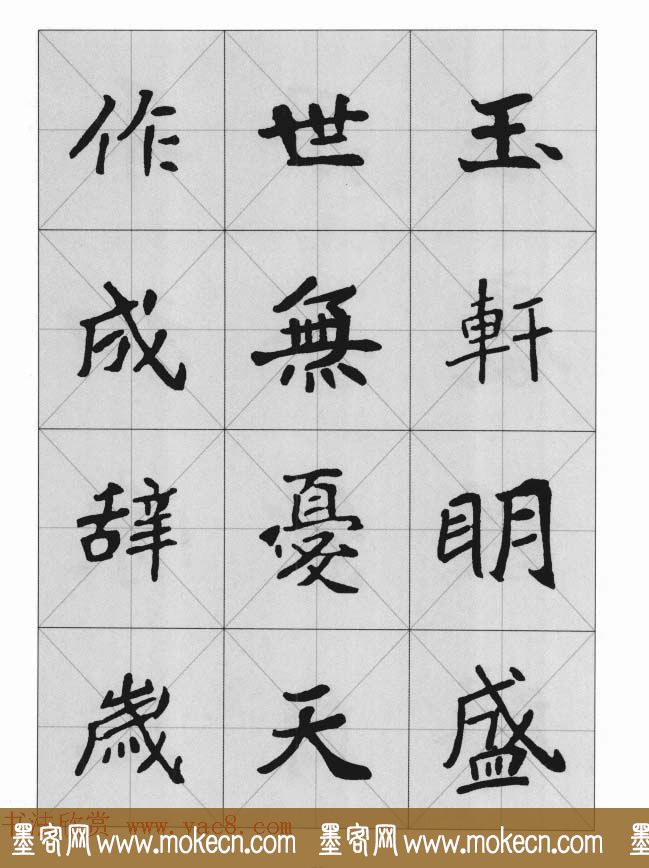 玉軒明盛
世無憂天
作成辞歲
书法欣赏 www.yac8.com
墨客网 www.mokecn.com 墨客网 www.mokecn.com 墨客网 www.mokecn.com